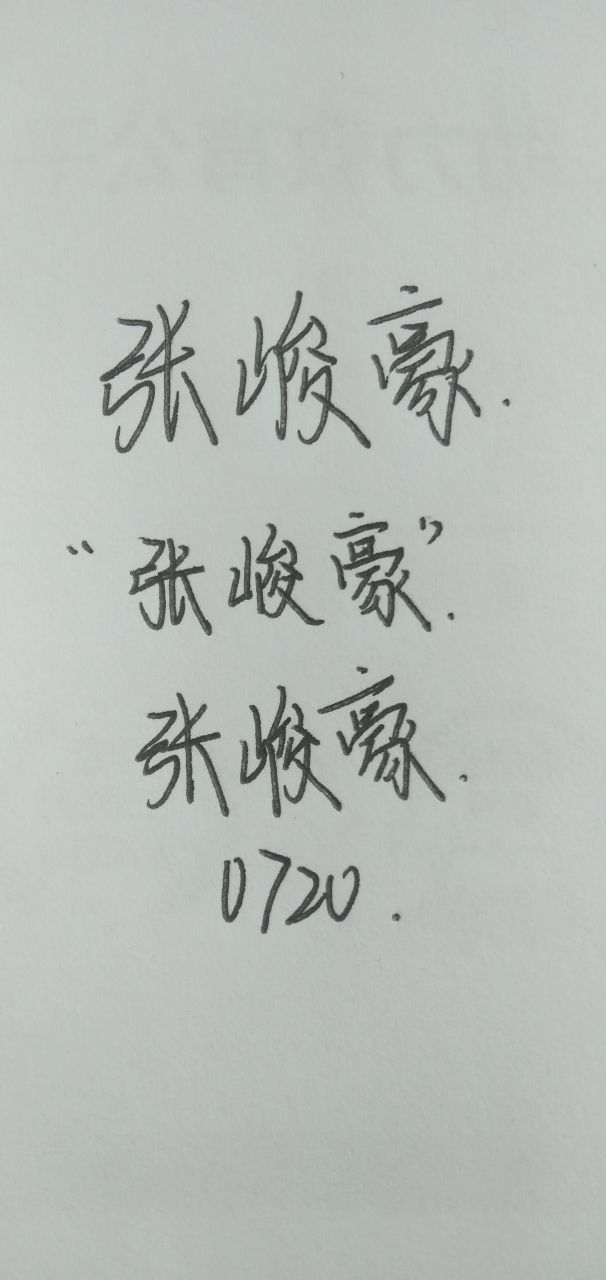 张峻豪.
“张峻豪”.
张峻豪.
0720.